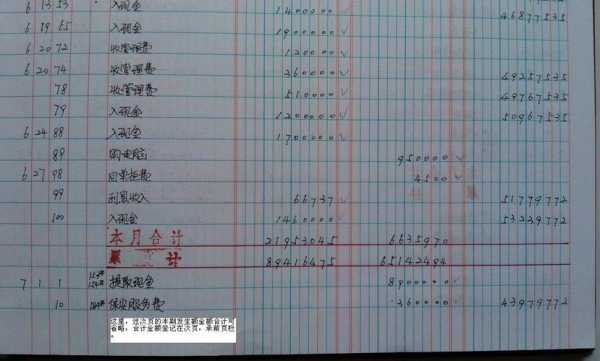 6 13 53 入现金 1400000 46877535
6 19 65 入现金 1900000
6 20 72 收管理费 120000
6 20 74 收管理费 360000 49257535
78 收管理费 510000 49767535
79 入现金 1200000 50967535
6 24 88 入现金 1700000
89 购电脑 950000
6 27 98 回单柜费 4500
99 利息收入 66737 51779772
100 入现金 1460000 53239772
本月合计 21953045 6635970
累 计 89416475 65142494
7 1 1 提取现金 8900000
10 保安服务费 360000 43979772
这里，过次页的本期发生额金额合计可
省略，合计金额登记在次页，承前页栏
。